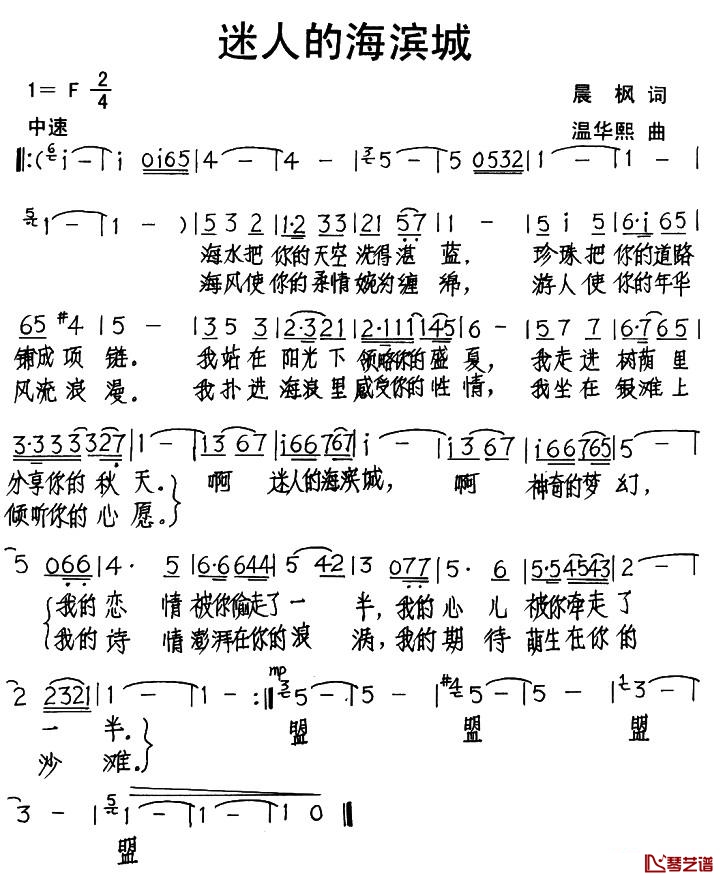 迷人的海滨城
1= F 2/4
晨 枫 词
中速
温华熙 曲
‖:(6 i - | i 0i65 | 4 - | 4 - | 3 5 - | 5 0532 | 1 - | 1 - |
5 1 - | 1 - ) | 5 3 2 | 1·2 33 | 21 57 | 1 - | 5 i 5 | 6·i 65 |
海水把 你的天空 洗得湛 蓝, 珍珠把 你的道路
海风使 你的柔情 婉约缠 绵, 游人使 你的年华
65 #4 | 5 - | 3 5 3 | 2·321 | 2·111 145 | 6 - | 5 7 7 | 6·7 65 |
铺成项 链. 我站在 阳光下 领略你的盛夏, 我走进 树荫里
风流浪 漫. 我扑进 海浪里 感受你的性情, 我坐在 银滩上
3·333 327 | 1 - | i3 67 | i667 67 | i - | i3 67 | 0667 65 | 5 - |
分享你的 秋天. 啊 迷人的海滨城, 啊 神奇的梦幻,
倾听你的 心愿.
5 066 | 4· 5 | 6·6 644 | 5 4·2 | 3 077 | 5· 6 | 5·5 4543 | 2 - |
我的恋 情 被你偷走了 一 半, 我的心 儿 被你牵走了
我的诗 情 澎湃在你的 浪 涛, 我的期 待 萌生在你的
mp
2 2321 | 1 - | 1 - :‖ 3 5 - | 5 - | #4 5 - | 5 - | 1 3 - |
一 半. 盟 盟 盟
沙 滩.
3 - | 5 1 - | 1 - | 1 0 ‖
盟
琴艺谱